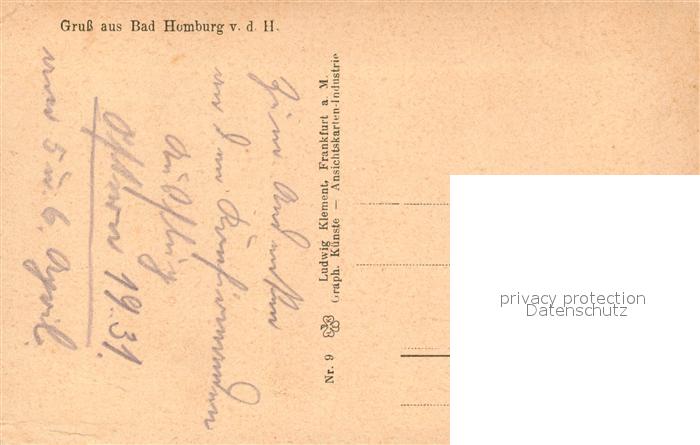 Gruß aus Bad Homburg v. d. H.
Zum Andenken
an
Ausflug
Ostern 1931.
vom 5 u. 6. April.
Nr. 9
Ludwig Klement, Frankfurt a. M.
Graph. Künste — Ansichtskarten-Industrie
privacy protection
Datenschutz